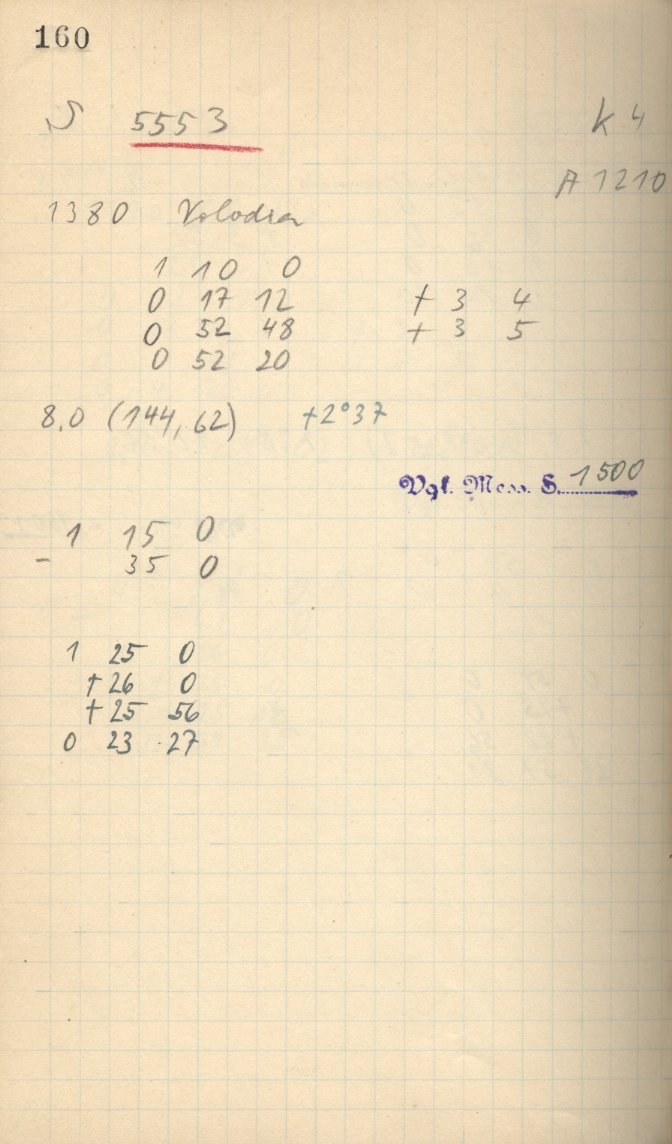 160
S 5553 K 4
A 1210
1380 Volodia
1 10 0
0 17 12 + 3 4
0 52 48 + 3 5
0 52 20
8.0 (144, 62) +2°37
Vgl. Mess. S. 1500
1 15 0
- 35 0
1 25 0
+26 0
+25 56
0 23 27